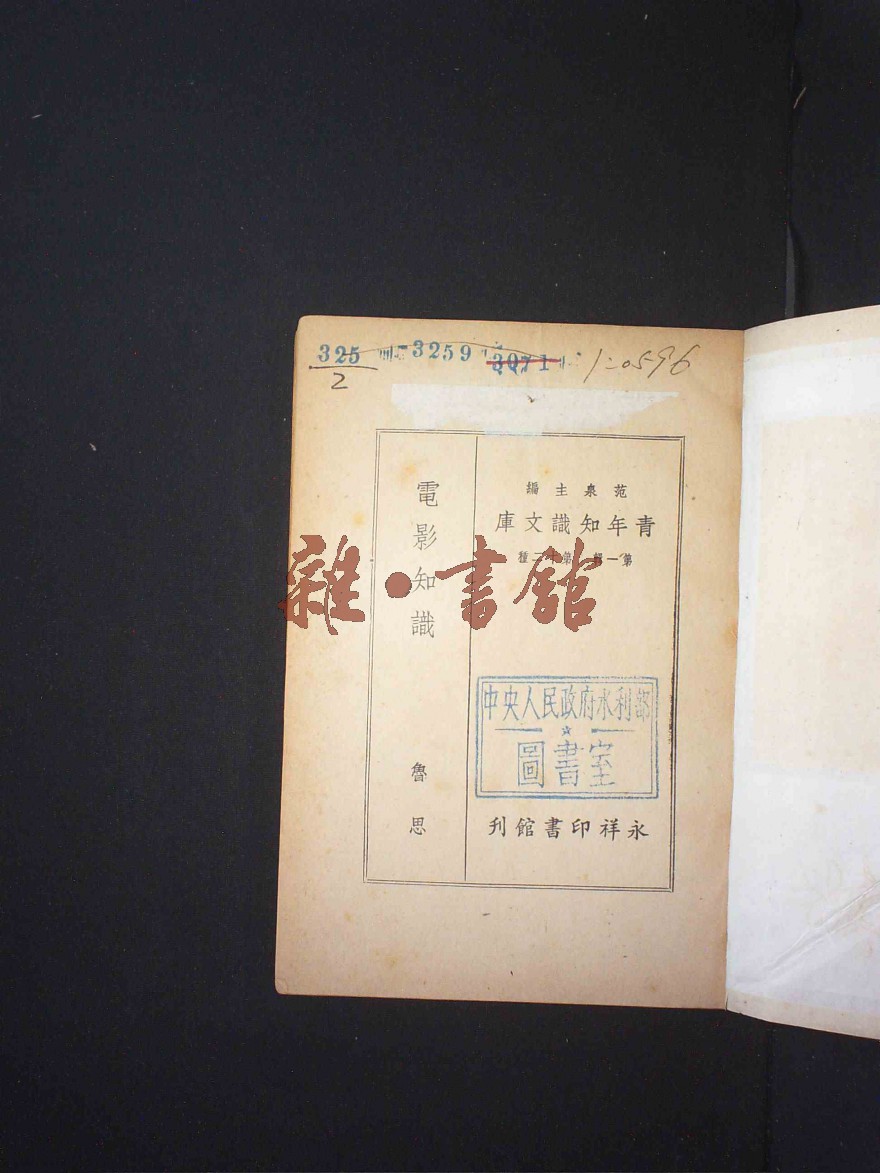 325
2
3259
3071
1-0596
范泉主編
青年知識文庫
第一輯 第十二種
電影知識
魯思
中央人民政府水利部
圖書室
永祥印書館刊
雜·書館